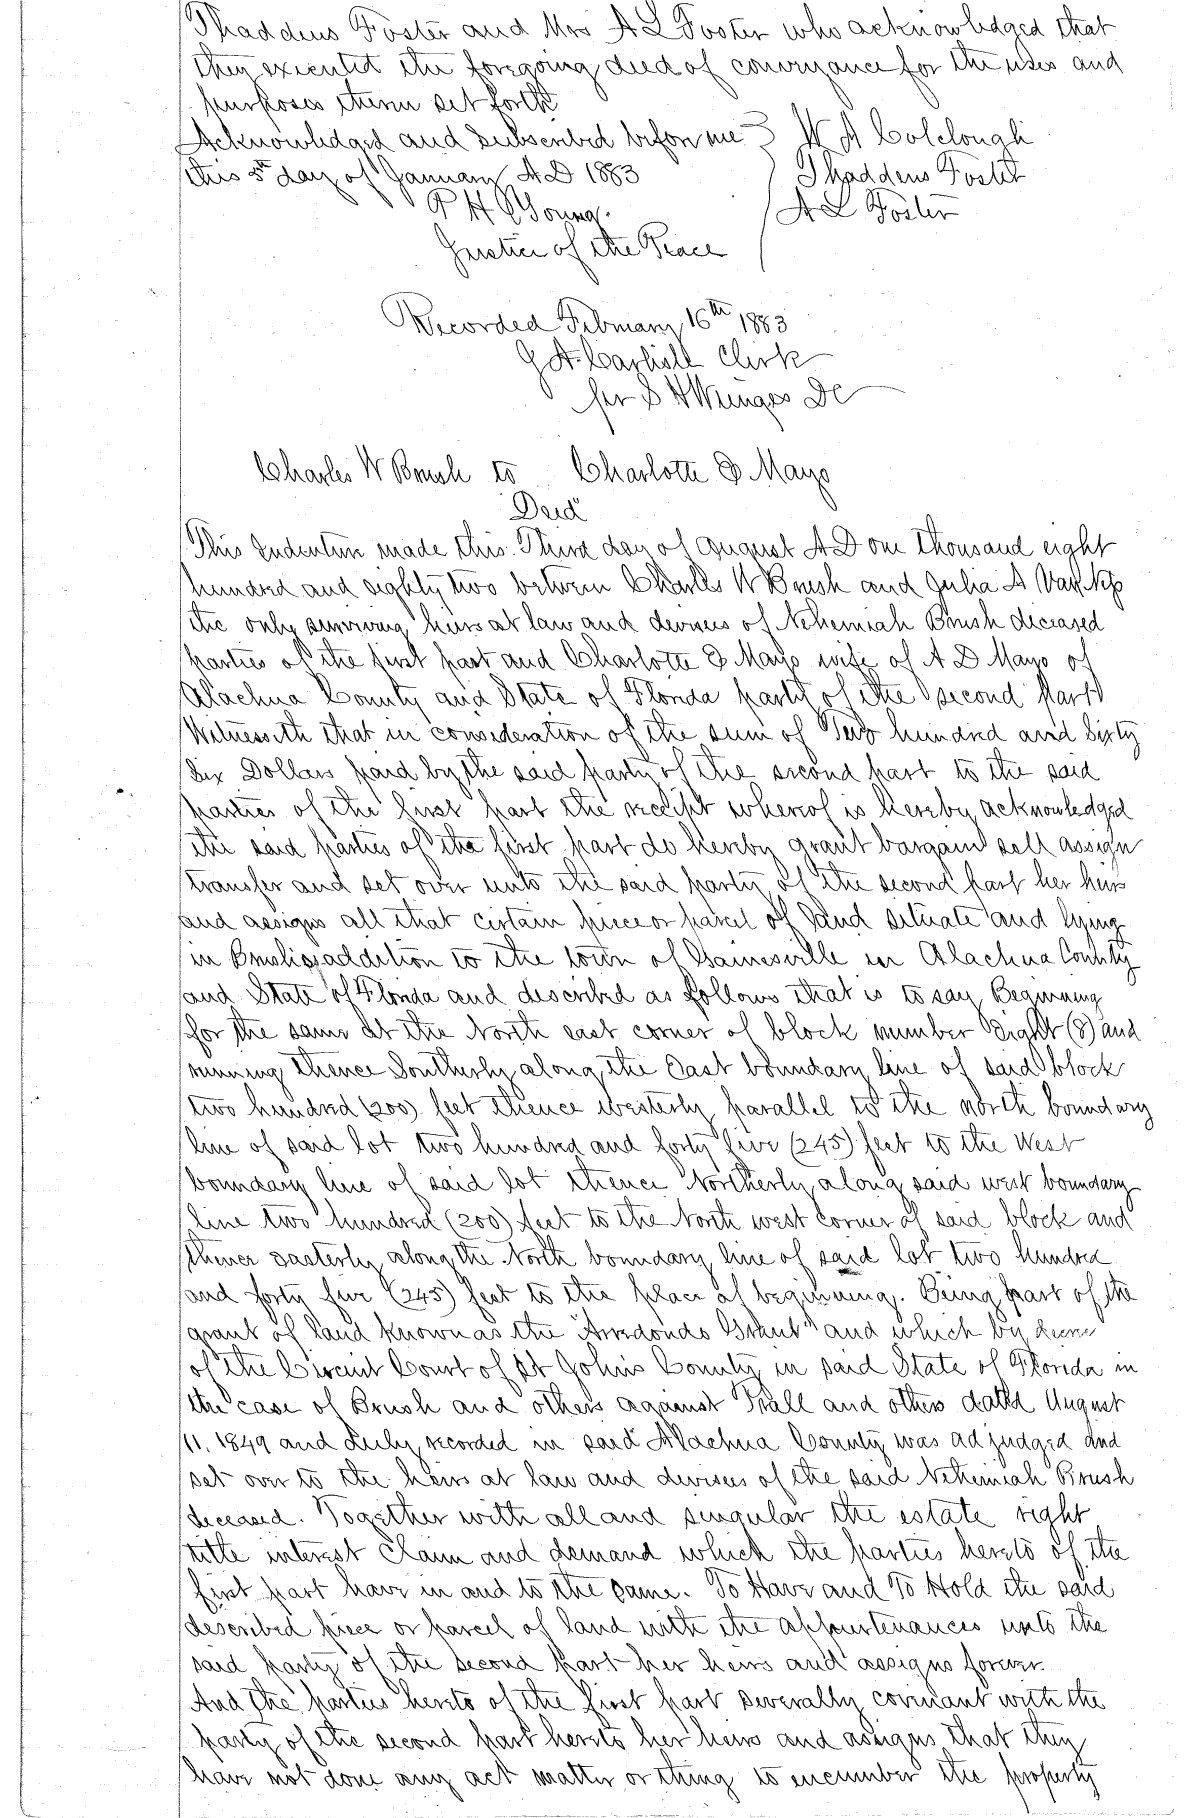 Thaddeus Foster and Mrs A L Foster who acknowledged that
they executed the foregoing deed of conveyance for the uses and
purposes therin set forth
Acknowledged and Subscribed before me } W A Colclough
this 5th day of January A D 1883 Thaddeus Foster
P H Young. A L Foster
Justice of the Peace
Recorded February 16th 1883
J A Carlisle Clerk
per S H Wienges DC
Charles W Brush to Charlotte D Mayo
Deed
This Indenture made this Third day of August A D one thousand eight
hundred and eighty two between Charles W Brush and Julia A
the only surviving heirs at law and devisees of Nehemiah Brush deceased
parties of the first part and Charlotte D Mayo wife of A D Mayo of
Alachua County and State of Florida party of the second part
Witnesseth that in consideration of the sum of Two hundred and Sixty
Six Dollars paid by the said party of the second part to the said
parties of the first part the receipt whereof is hereby acknowledged
the said parties of the first part do hereby grant bargain sell assign
transfer and set over unto the said party of the second part her heirs
and assigns all that certain piece or parcel of land situate and lying
in Brushs addition to the town of Gainesville in Alachua County
and State of Florida and described as follows that is to say Beginning
for the same at the North east corner of block number Eight (8) and
running thence Southerly along the East boundary line of said block
two hundred (200) feet thence westerly parallel to the north boundary
line of said lot two hundred and forty five (245) feet to the West
boundary line of said lot thence Northerly along said west boundary
line two hundred (200) feet to the North west corner of said block and
thence easterly along the North boundary line of said lot two hundred
and forty five (245) feet to the place of beginning. Being part of the
grant of land known as the "Arredondo Grant" and which by decree
of the Circuit Court of St Johns County in said State of Florida in
the case of Brush and others against Trall and others dated August
11. 1849 and duly recorded in said Alachua County was adjudged and
set over to the heirs at law and devisees of the said Nehemiah Brush
deceased. Together with all and singular the estate right
title interest claim and demand which the parties hereto of the
first part have in and to the same. To Have and To Hold the said
described piece or parcel of land with the appurtenances unto the
said party of the second part her heirs and assigns forever.
And the parties hereto of the first part severally covenant with the
party of the second part hereto her heirs and assigns that they
have not done any act matter or thing to encumber the property